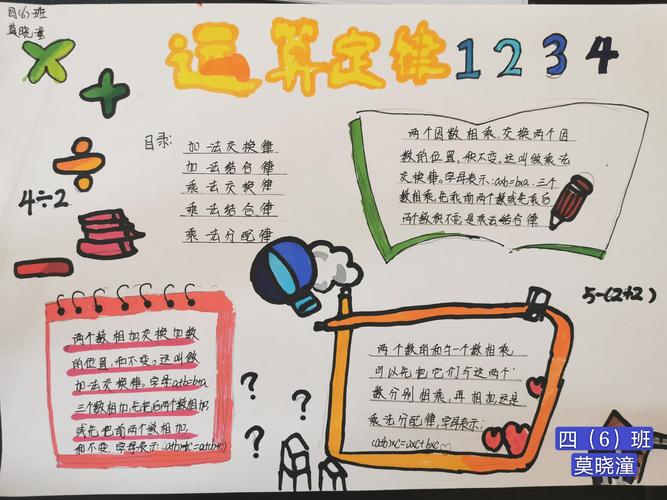 四(6)班
莫晓潼
运算定律1234
4÷2
目录:
加法交换律
加法结合律
乘法交换律
乘法结合律
乘法分配律
两个因数相乘,交换两个因
数的位置,积不变。这叫做乘法
交换律。字母表示:a×b=b×a. 三个
数相乘,先乘前两个数或先乘后
两个数积不变是乘法结合律
5-(2+2)
两个数相加交换加数
的位置,和不变。这叫做
加法交换律。字母a+b=b+a
三个数相加先把后两个数相加,
或先把前两个数相加,
和不变,字母表示:(a+b)+c=a+(b+c)
两个数的和与一个数相乘,
可以先把它们与这两个
数分别相乘,再相加,这是
乘法分配律,字母表示:
(a+b)×c=a×c+b×c
? ? ?
四(6)班
莫晓潼